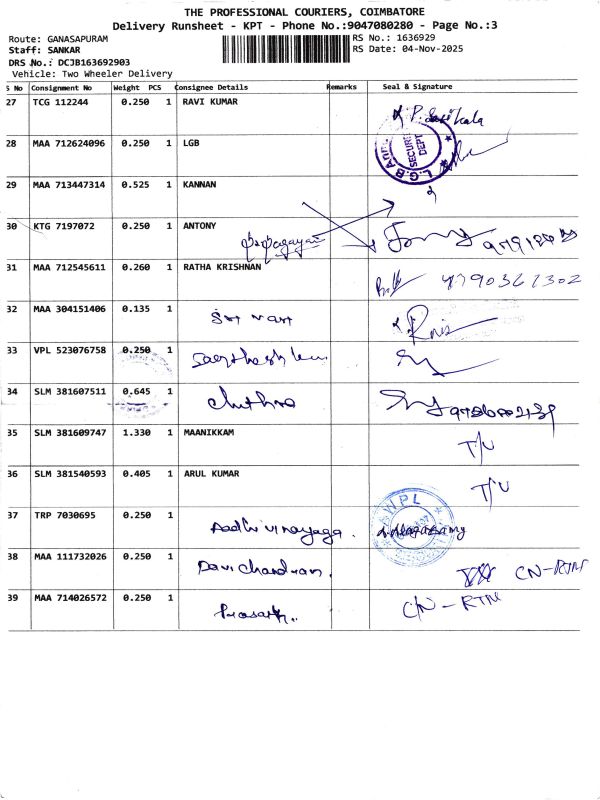 THE PROFESSIONAL COURIERS, COIMBATORE
Delivery Runsheet - KPT - Phone No.:9047080280 - Page No.:3
Route: GANASAPURAM
RS No.: 1636929
Staff: SANKAR
RS Date: 04-Nov-2025
DRS No.: DCJB163692903
Vehicle: Two Wheeler Delivery
S No Consignment No Weight PCS Consignee Details Remarks Seal & Signature
27 TCG 112244 0.250 1 RAVI KUMAR
28 MAA 712624096 0.250 1 LGB
SECURITY DEPT
29 MAA 713447314 0.525 1 KANNAN
30 KTG 7197072 0.250 1 ANTONY
31 MAA 712545611 0.260 1 RATHA KRISHNAN
4790361302
32 MAA 304151406 0.135 1 Sri vari
33 VPL 523076758 0.250 1
34 SLM 381607511 0.645 1 Chithra
35 SLM 381609747 1.330 1 MAANIKKAM
36 SLM 381540593 0.405 1 ARUL KUMAR
37 TRP 7030695 0.250 1 Aadhi vinayaga.
AWPL
38 MAA 111732026 0.250 1 CN-RTN
39 MAA 714026572 0.250 1 C/N-RTN